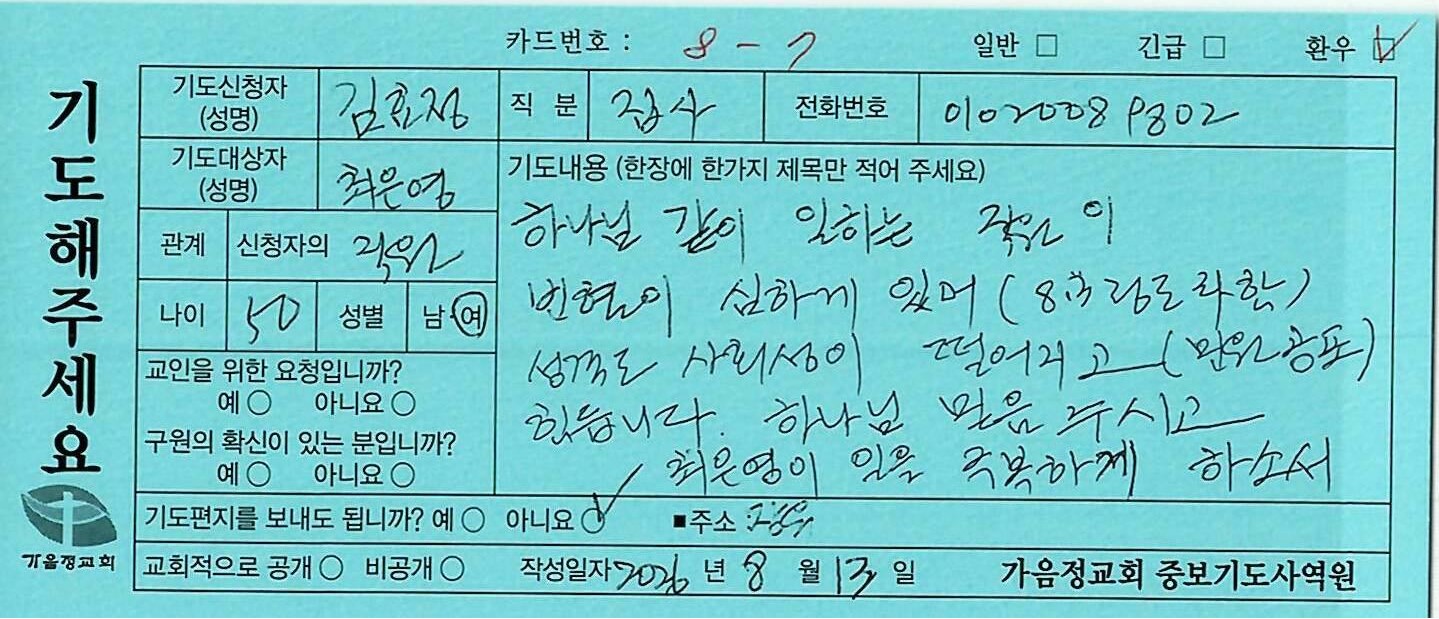 카드번호 : 8 - 7 일반 □ 긴급 □ 환우 ☑
기도해주세요
기도신청자 (성명) 김효정 직 분 집사 전화번호 01020089802
기도대상자 (성명) 최은영
관계 신청자의 직원
나이 50 성별 남·여
교인을 위한 요청입니까?
예 ○ 아니요 ○
구원의 확신이 있는 분입니까?
예 ○ 아니요 ○
기도내용 (한장에 한가지 제목만 적어 주세요)
하나님 같이 일하는 직원이
빈혈이 심하게 있어 (8 정도라함)
성격도 사회성이 떨어지고 (만원공포)
힘듭니다. 하나님 믿음 주시고
최은영이 일을 축복하게 하소서
기도편지를 보내도 됩니까? 예 ○ 아니요 ✓ ■주소 :
교회적으로 공개 ○ 비공개 ○ 작성일자 2026 년 8 월 13 일 가음정교회 중보기도사역원
가음정교회